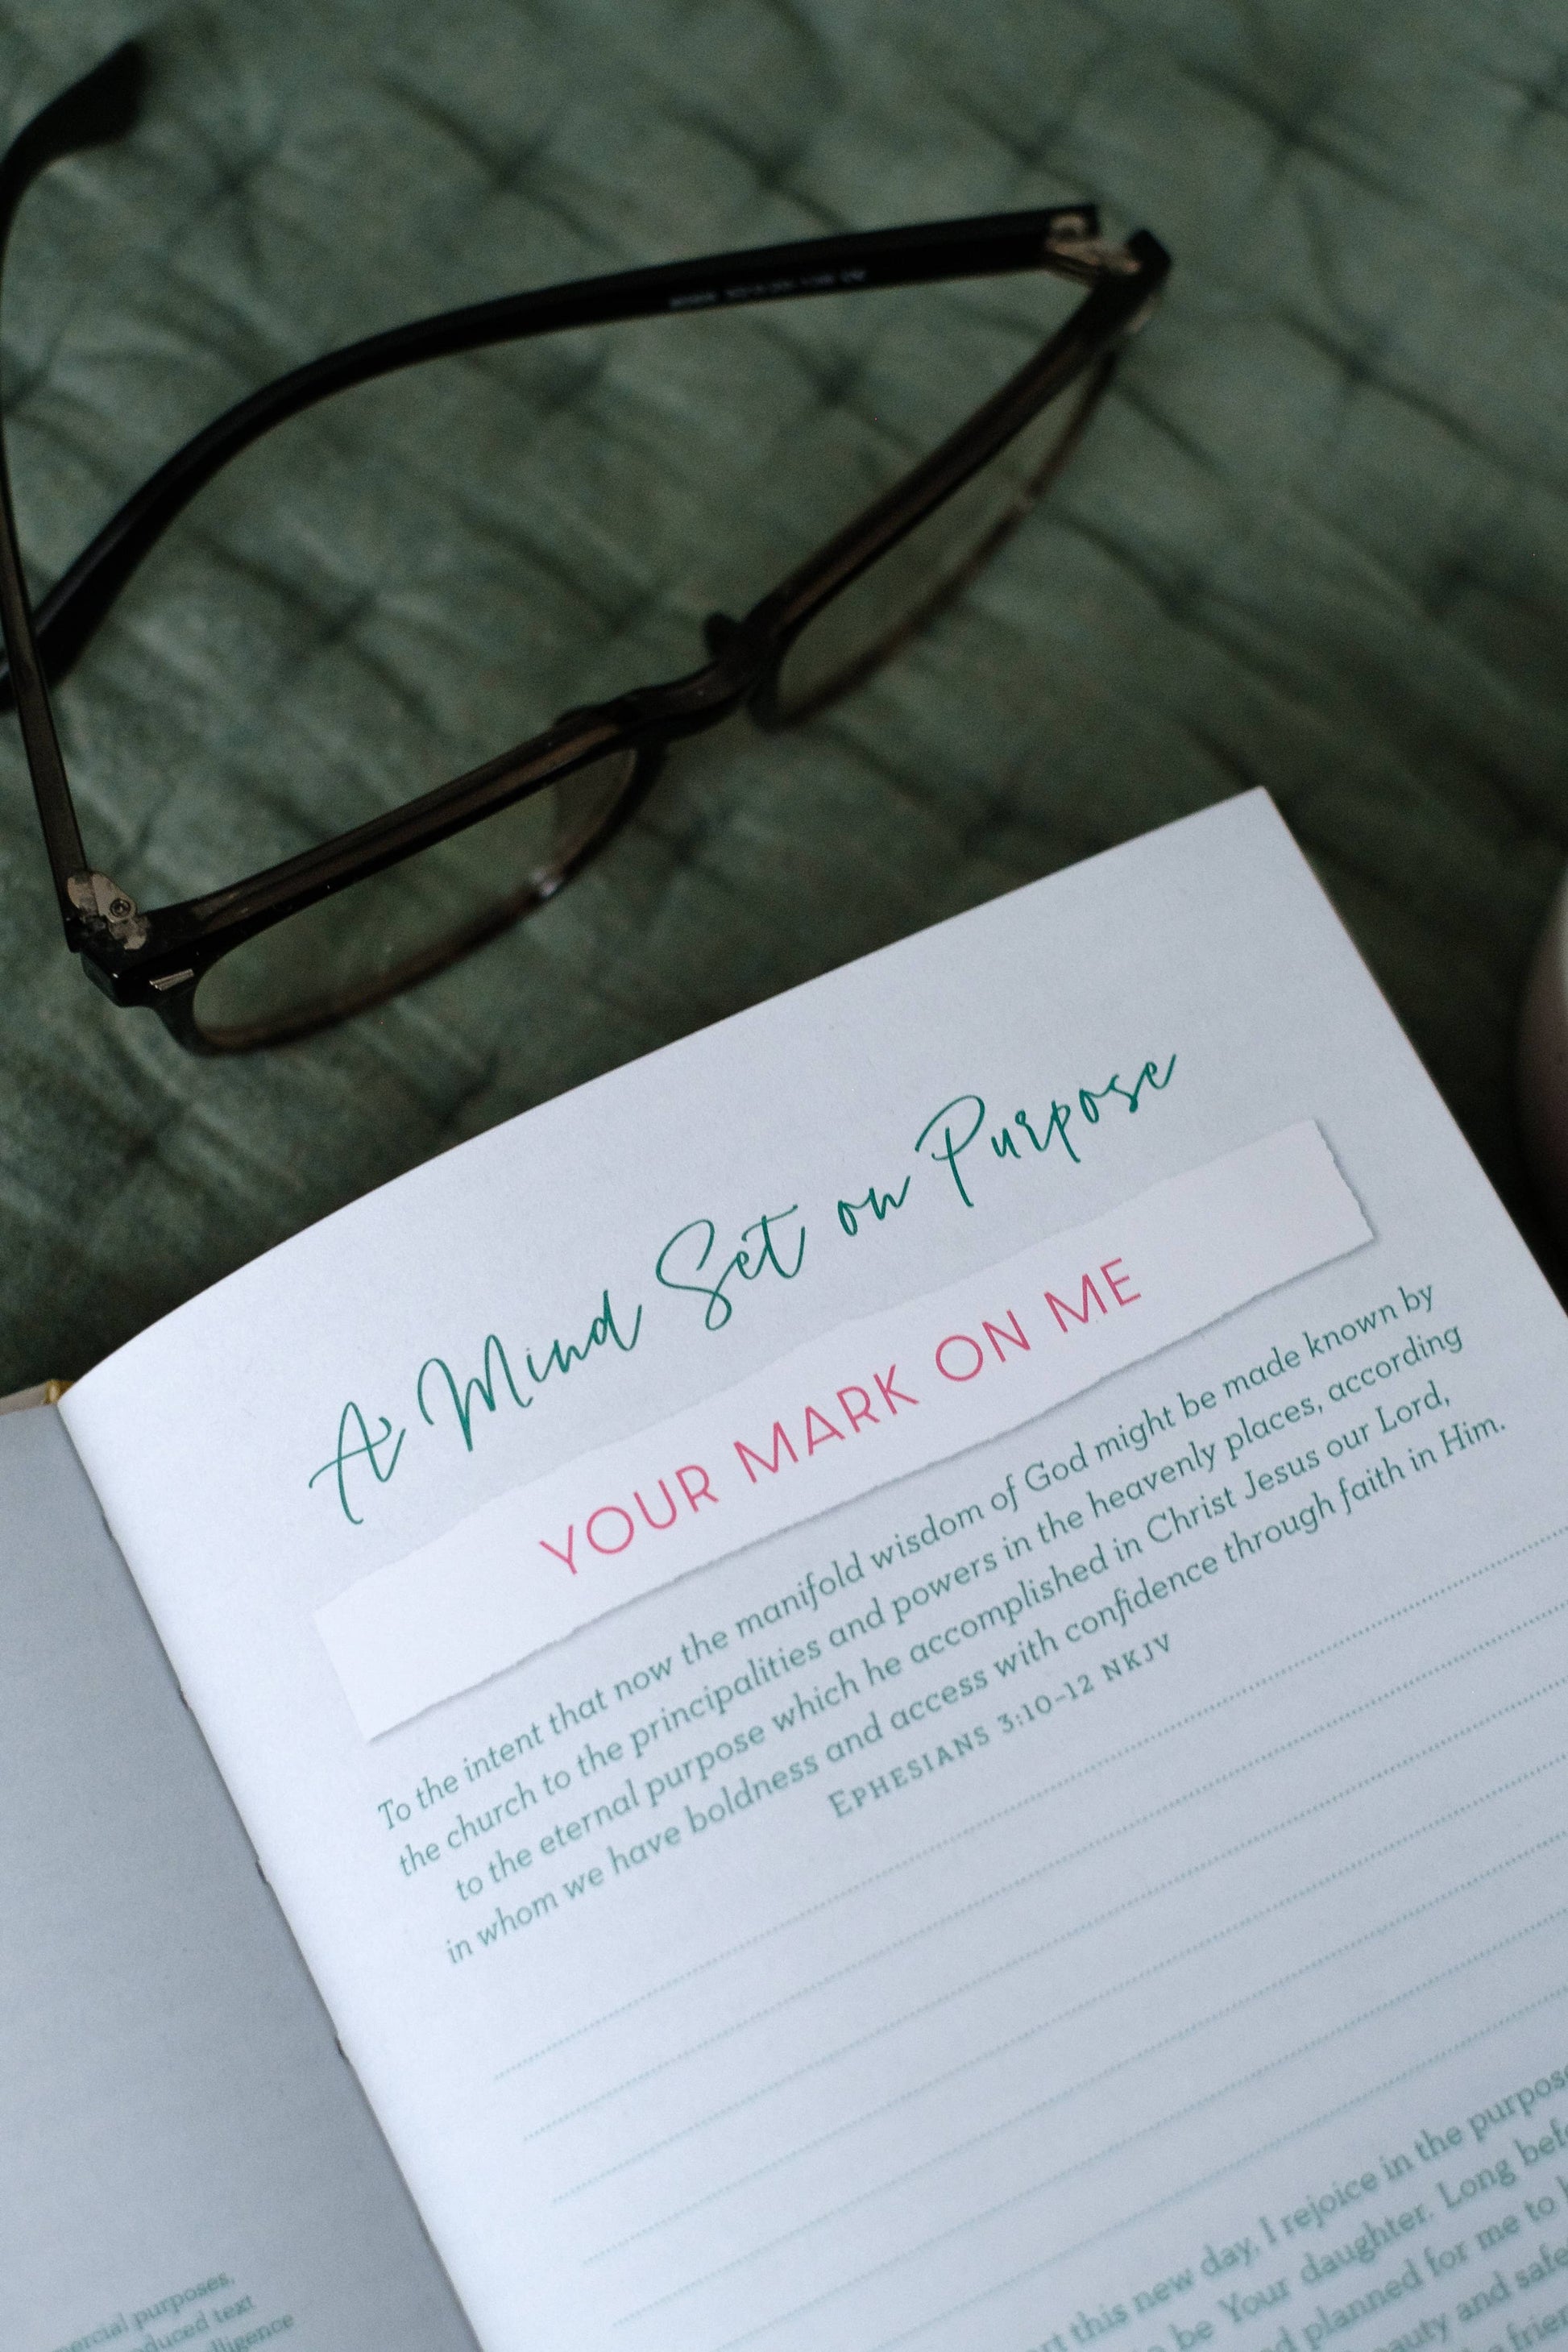 A Mind Set on Purpose
YOUR MARK ON ME
To the intent that now the manifold wisdom of God might be made known by
the church to the principalities and powers in the heavenly places, according
to the eternal purpose which he accomplished in Christ Jesus our Lord,
in whom we have boldness and access with confidence through faith in Him.
EPHESIANS 3:10–12 NKJV
this new day. I rejoice in the purpose
be Your daughter. Long
planned for me to
and
purposes,
text